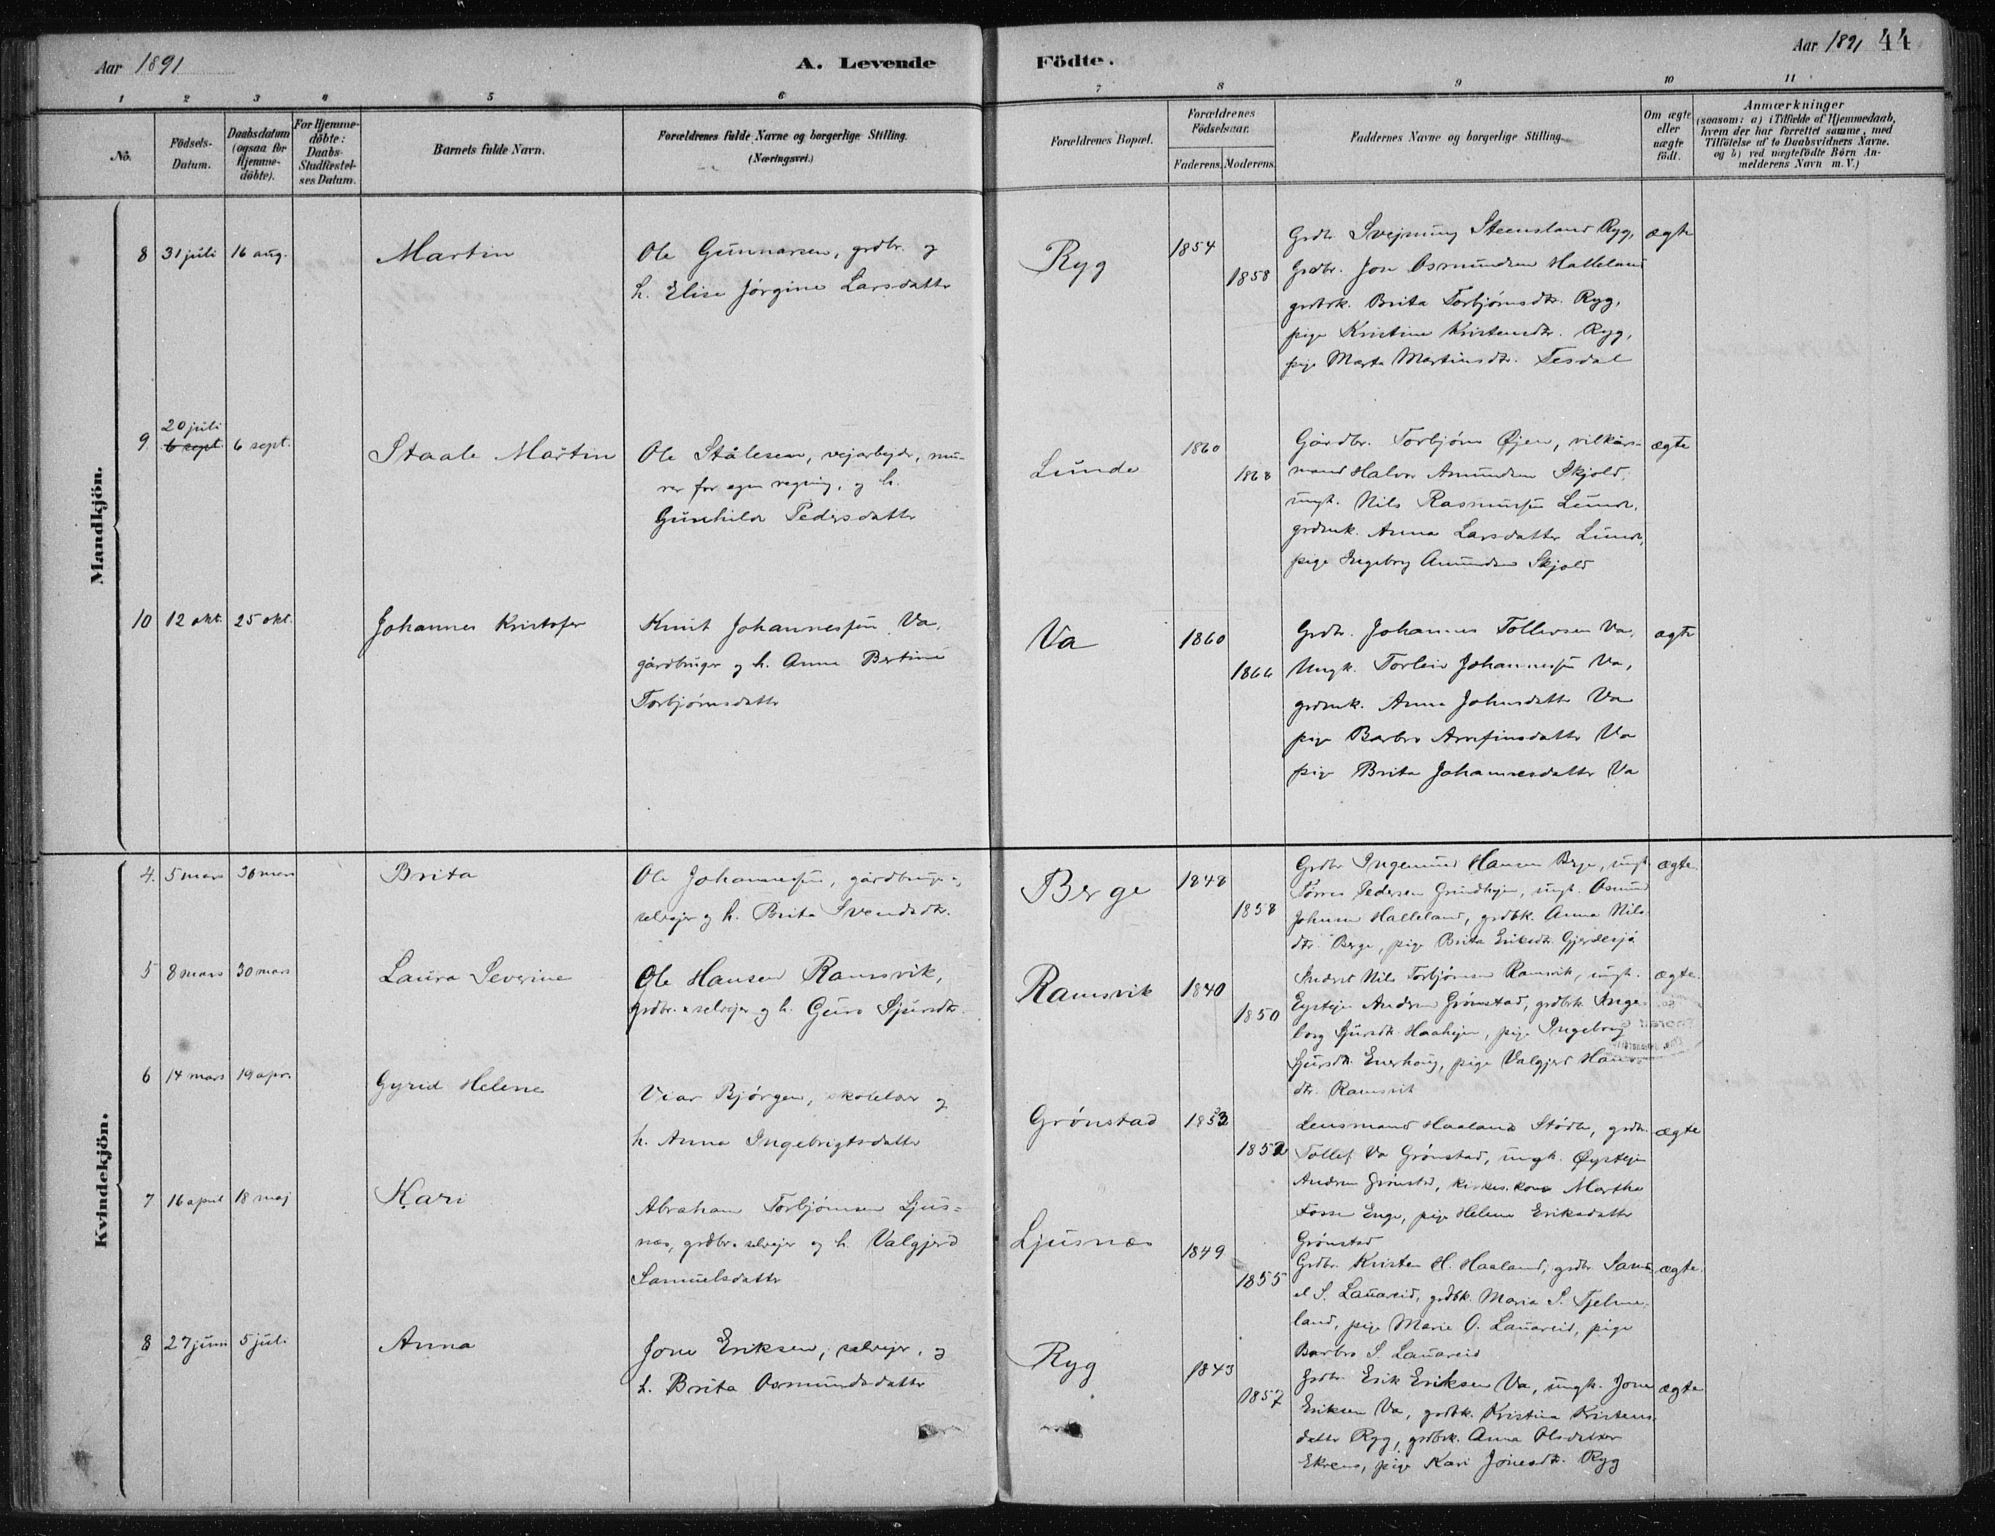 Aar 1891
A. Levende
Födte.
Aar 1891 44
1 2 3 4 5 6 7 8 9 10 11
No.
Födsels-
Datum.
Daabsdatum
(ogsaa for
Hjemme-
döbte).
For Hjemme-
döbte:
Daabs-
Stadfæstel-
ses Datum.
Barnets fulde Navn.
Forældrenes fulde Navne og borgerlige Stilling.
(Næringsvei.)
Forældrenes Bopæl.
Forældrenes
Födselsaar.
Faderens. Moderens.
Faddernes Navne og borgerlige Stilling.
Om ægte
eller
uægte
födt.
Anmærkninger
(saasom: a) i Tilfælde af Hjemmedaab,
hvem der har forrettet samme, med
Tilföielse af to Daabsvidners Navne.
og b) ved uægtefödte Börn An-
melderens Navn m. V.)
Mandkjön.
8 31 juli 16 aug. Martin
Ole Gunnarsen, grdbr. og
h. Elise Jørgine Larsdatter
Ryg
1854
1858
Grdbr. Svejnung Steensland Ryg,
Grdbr. Jon Osmundsen Halleland
grdbrk. Brita Torbjørnsdtr. Ryg,
pige Kristine Kristensdtr. Ryg,
pige Marta Martinsdtr. Tesdal
ægte
9. 20 juli
6 sept. 6 sept. Staale Martin
Ole Stålesen, vejarbejdr, mu-
rer for egen regning, og h.
Gunhilda Pedersdatter
Lunde
1860
1868
Gårdbr. Torbjørn Øjen, vilkårs-
mand Halvor Amundsen Skjold,
ungk. Nils Rasmussen Lunde,
grdmk. Anna Larsdatter Lunde,
pige Ingebrg Amundsen Skjold
ægte
10 12 okt. 25 okt. Johannes Kristofer
Knut Johannessen Va,
gårdbruger og h. Anna Bertine
Torbjørnsdatter
Va
1860
1866
Grdbr. Johannes Tollevsen Va,
Ungk. Torleiv Johannessen Va,
grdmk. Anna Johnsdatter Va
pige Barbro Arnfinsdatter Va
pige Brita Johannesdatter Va
ægte
Kvindekjön.
4. 5 mars 30 mars Brita
Ole Johannessen, gårdbruger,
selvejer og h. Brita Svendsdtr.
Berge
1848
1858
Grdbr. Ingemund Hansen Berge, ungk.
Tørres Pedersen Grindhejm, ungk. Osmund
Johnsen Halleland, grdbk. Anna Nils-
dtr. Berge, pige Brita Eriksdtr. Gjerdesjå
ægte
5 8 mars 30 mars Laura Severine
Ole Hansen Ramsvik,
grdbr. selvejer og h. Guro Sjursdtr.
Ramsvik
1840
1850
Nils Torbjørnsen Ramsvik, ungk.
Eystejn Andren Grønstad, grdbrk. Inge-
borg Sjursdtr. Haahejm, pige Ingeborg
Sjursdtr. Enerhoug, pige Valgjerd Hans-
dtr. Ramsvik
ægte
6 14 mars 19 apr. Gyrid Helene
Viar Bjørgen, skolelær og
h. Anna Ingebrigtsdatter
Grønstad
1853
1852
Lensmand Haaland Stødle, grdbr.
Tollef Va Grønstad, ungk. Øystejn
Andren Grønstad, kirkes. kone Martha
Fosse Enge, pige Helene Eriksdatter
Grønstad
ægte
7 16 april 18 maj Kari
Abraham Torbjørnsen Ljus-
næs, grdbr. selvejer og h. Valgjerd
Samuelsdatter
Ljusnæs
1849
1855
Grdbr. Kristen H. Haaland, grdbr. Samu-
el S. Lauareid, grdbk. Maria S. Tjelme-
land, pige Marie O. Lauareid, pige
Barbro S. Lauareid
ægte.
8 27 juni 5 juli Anna
Jone Eriksen, selvejer, og
h. Brita Osmundsdatter
Ryg
1843
1857
Grdbr. Erik Eriksen Va, ungk. Jone
Eriksen Va, grdbk. Kristina Kristens-
datter Ryg, grdbrk. Anna Olsdatter
Ekrene, pige Kari Jonesdtr. Ryg
ægte